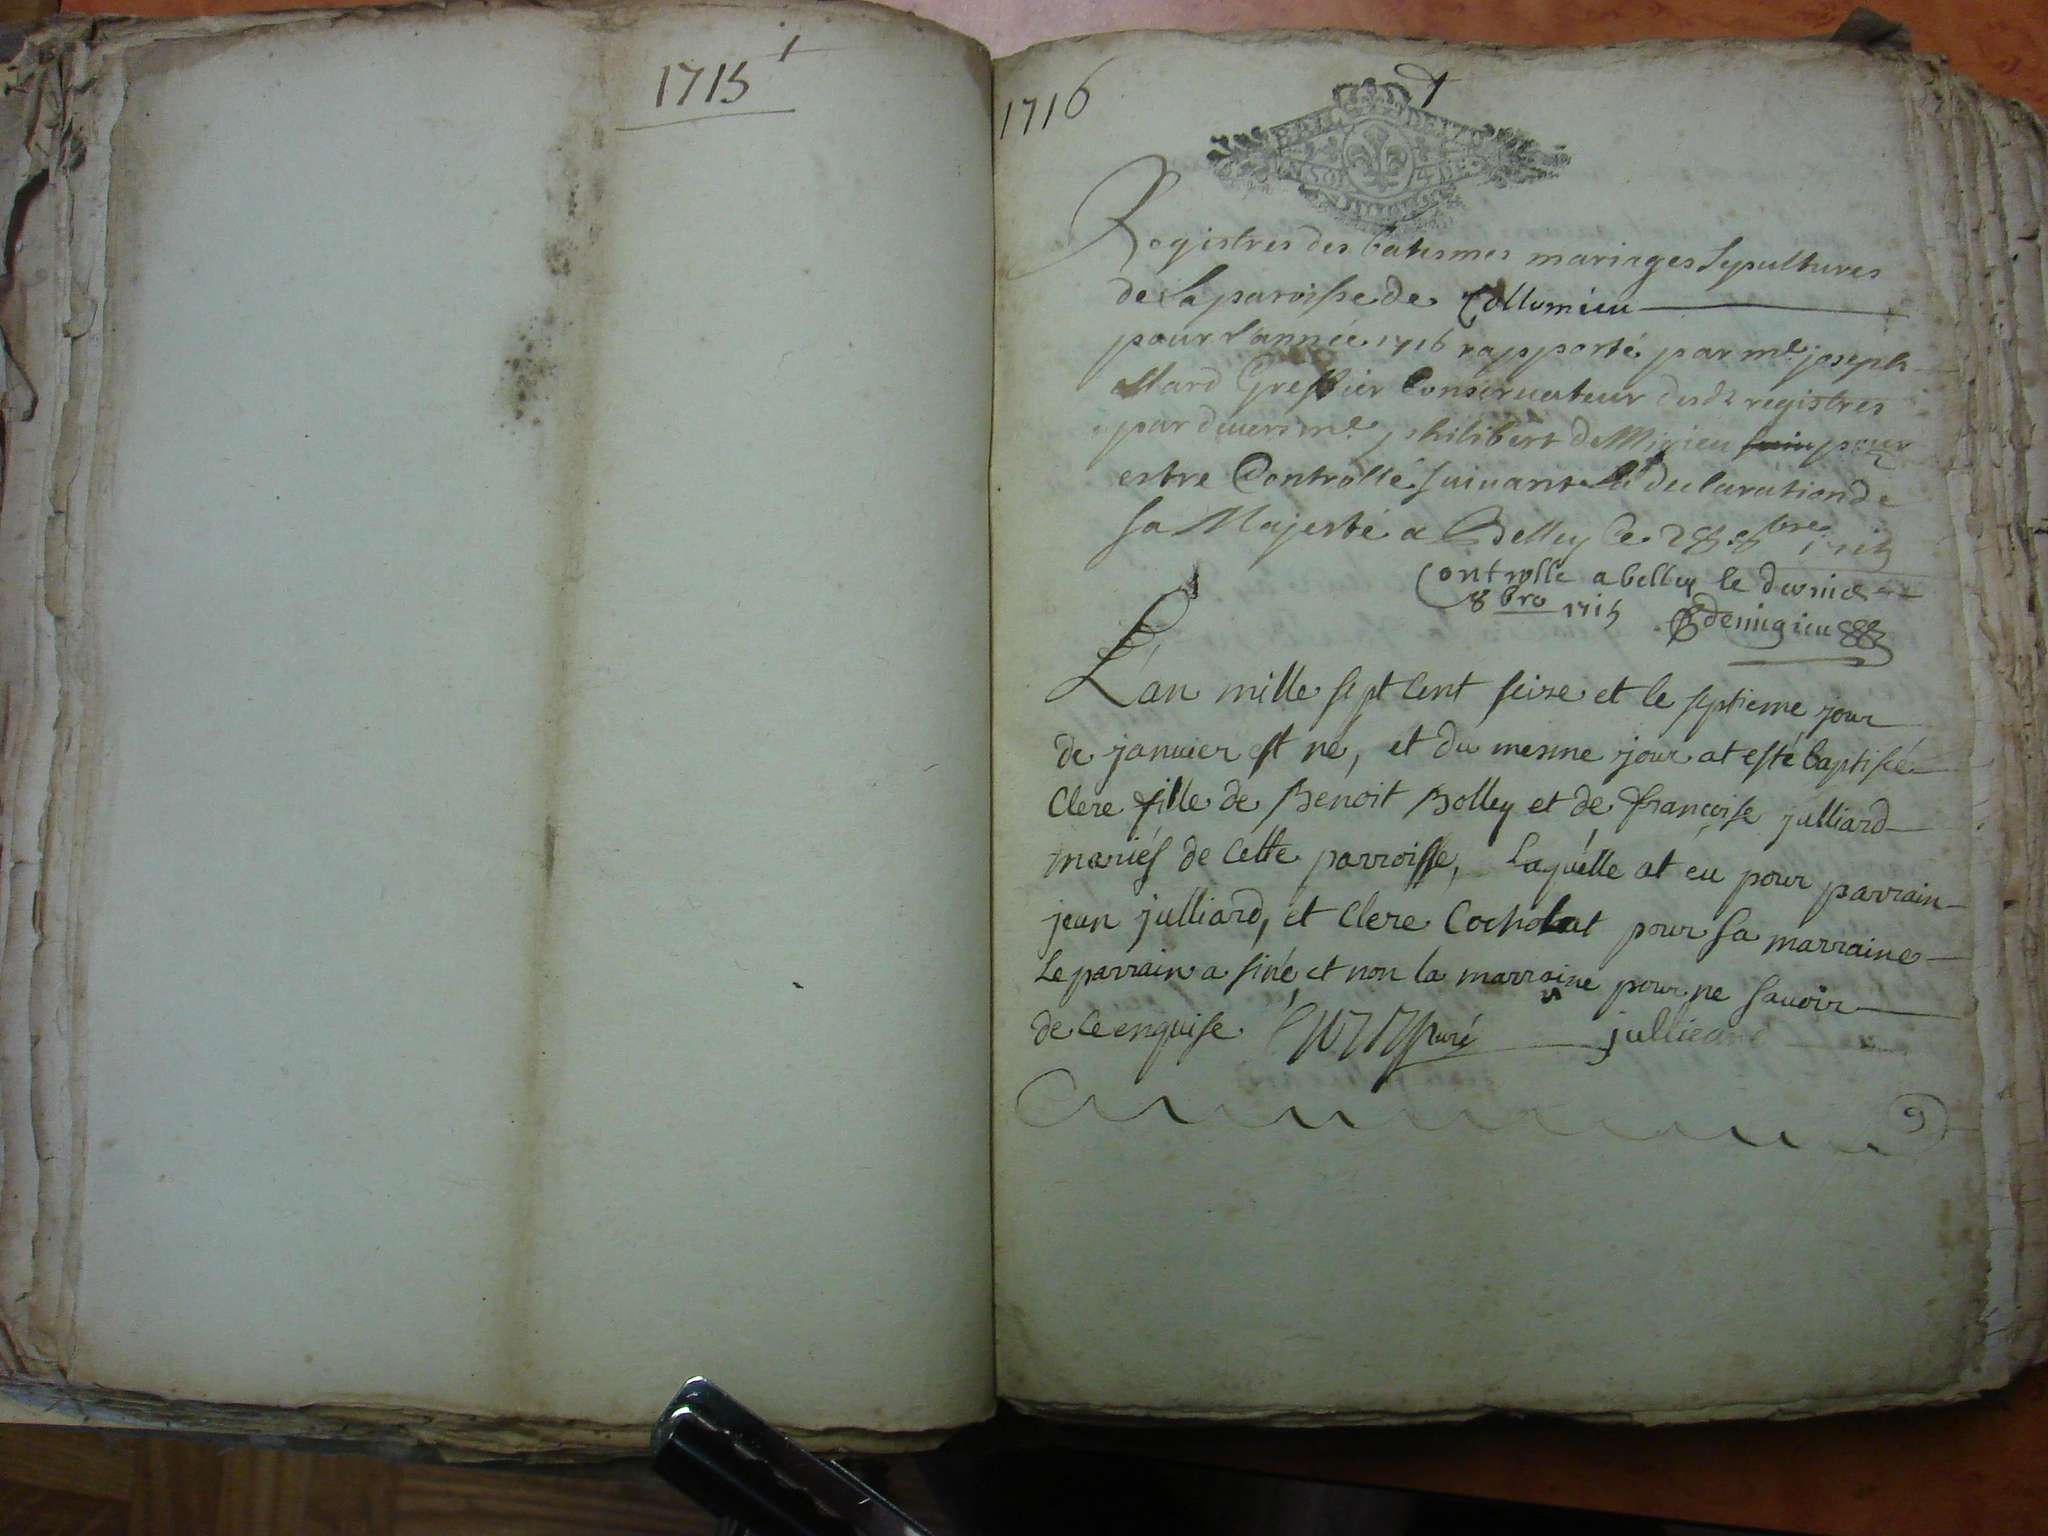 1715
1716
Registres des batesmes mariages Sepultures
de La paroisse de Collomieu
pour l'année 1716 rapporté par me. joseph
Greffier Conservateur desd. registres
par devers me. philibert deMigieu pour
estre Controllé suivant la declaration de
sa Majesté a Belley le 28 8bre 1715
Controlle a belley le dernie
8bre 1715 demigieu
L'an mille sept cent seize et le septieme jour
de janvier est né, et du mesme jour at esté baptisée
Clere fille de Benoit Bolley et de françoise julliard
mariés de cette parroisse, Laquelle at eu pour parrain
jean julliard, et Clere Cocholat pour sa marraine
Le parrain a siné, et non la marraine pour ne savoir
de ce enquise Curé julliard